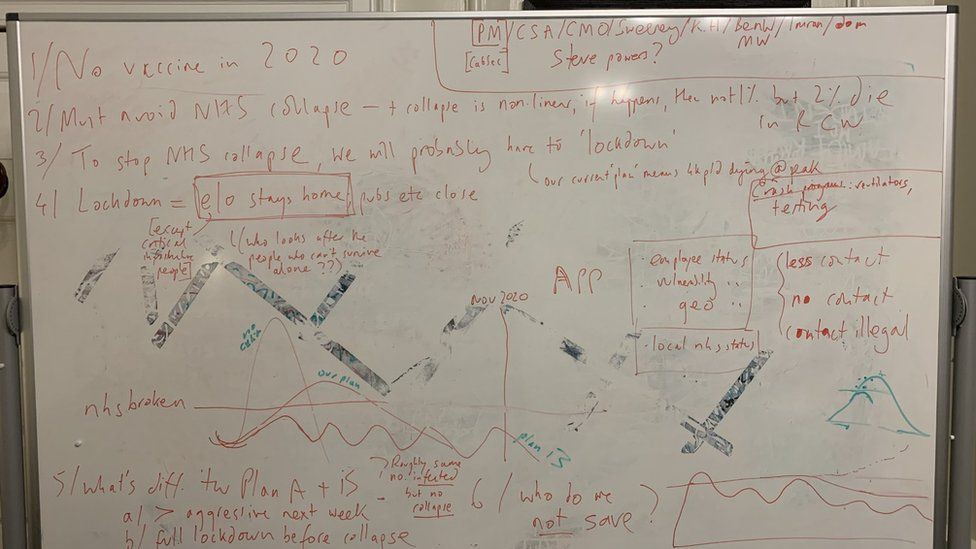 PM/CSA/CMO/Sweeney/K.H/BenW/Imran/dom
MW
[CabSec]
Steve powers?
1/ No vaccine in 2020
2/ Must avoid NHS collapse – + collapse is non-linear, if happens, then not 1% but 2% die
in RCW
3/ To stop NHS collapse, we will probably have to 'lockdown'
(our current 'plan' means 4k p/d dying @ peak
4/ Lockdown = e/o stays home, pubs etc close
Crash programs: ventilators,
testing
[except
critical
infrastructure
people]
(who looks after the
people who can't survive
alone??)
APP
· employee status
· vulnerability "
geo "
· local nhs status
less contact
no contact
contact illegal
NOV 2020
no
our plan
nhs broken
plan iB
5/ what's diff. btw Plan A + iB
a/ > aggressive next week
b/ full lockdown before collapse
> Roughly same
no. infected
but no
collapse
6/ who do we
not save?